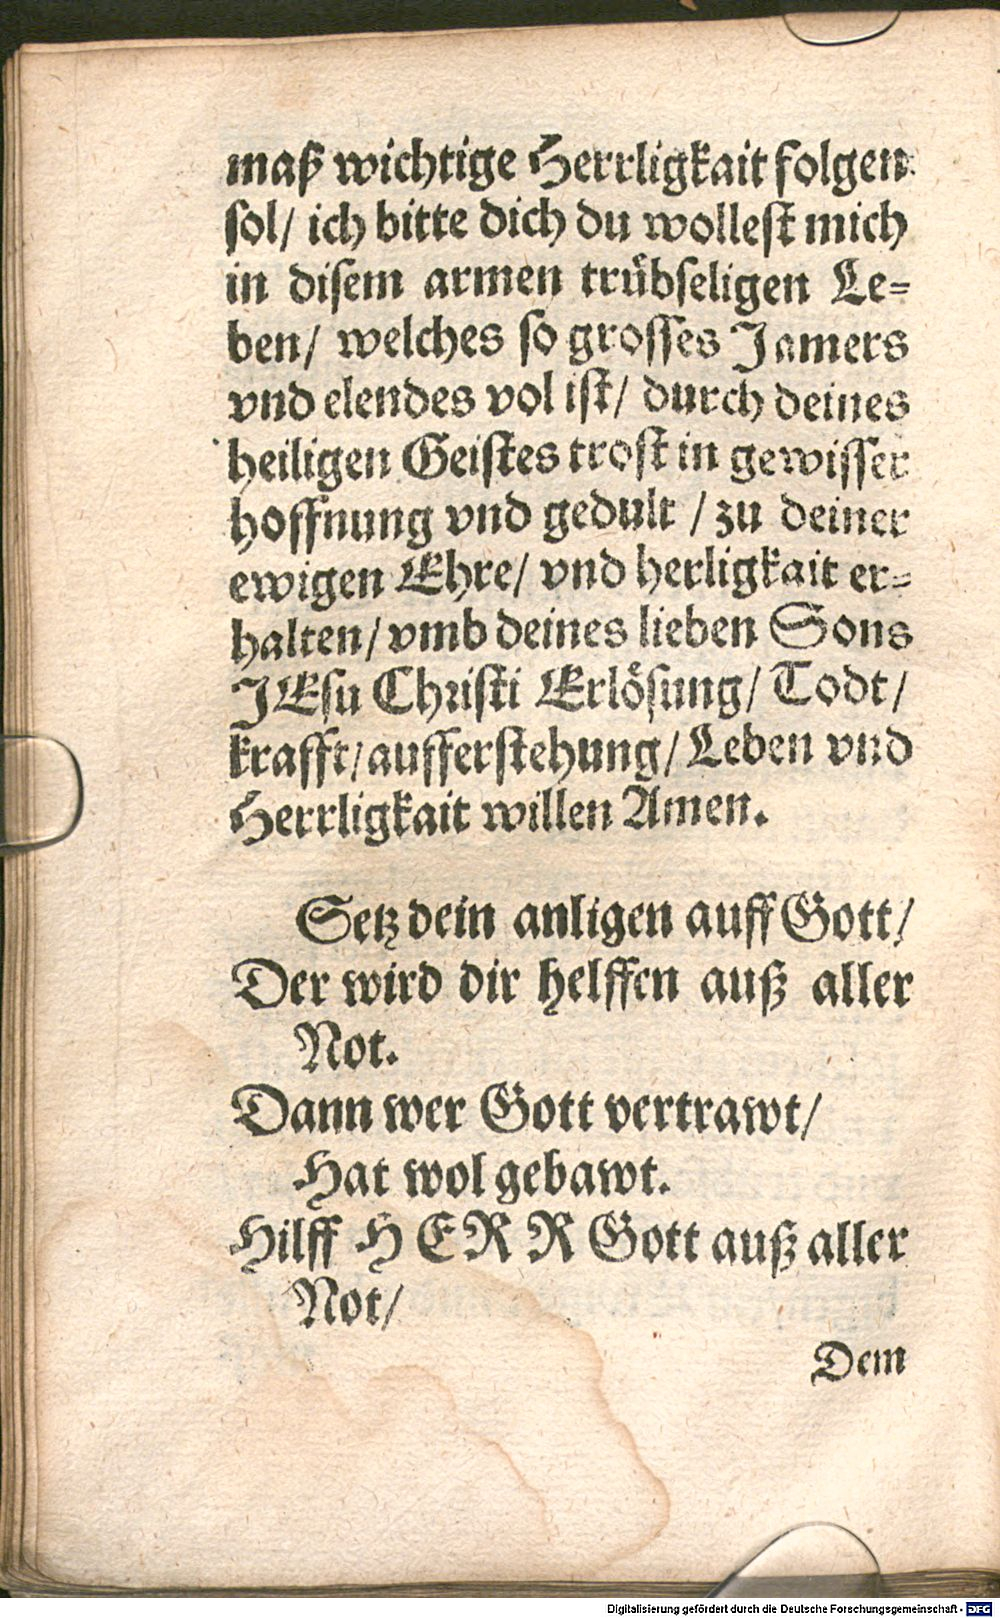 maß wichtige Herrligkait folgen
sol/ ich bitte dich du wollest mich
in disem armen trübseligen Le-
ben/ welches so grosses Jamers
vnd elendes vol ist/ durch deines
heiligen Geistes trost in gewisser
hoffnung vnd gedult / zu deiner
ewigen Ehre/ vnd herligkait er-
halten/ vmb deines lieben Sons
JEsu Christi Erlösung/ Todt/
krafft/ aufferstehung/ Leben vnd
Herrligkait willen Amen.
Setz dein anligen auff Gott/
Der wird dir helffen auß aller
Not.
Dann wer Gott vertrawt/
Hat wol gebawt.
Hilff HERR Gott auß aller
Not/
Dem
Digitalisierung gefördert durch die Deutsche Forschungsgemeinschaft - DFG